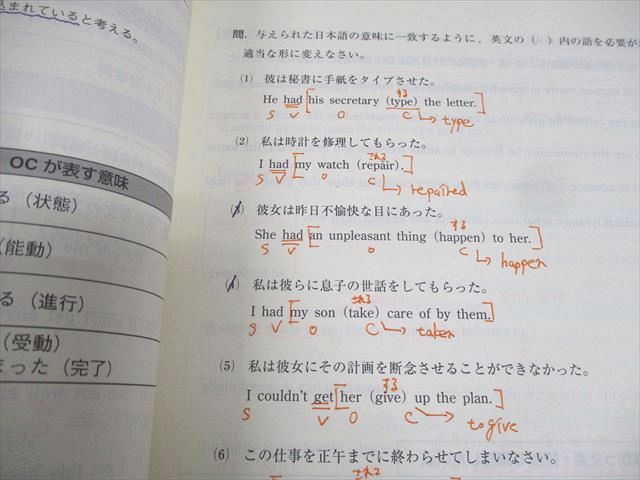 込まれていると考える。
OCが表す意味
る（状態）
（能動）
る（進行）
（受動）
まった（完了）
問．与えられた日本語の意味に一致するように，英文の（　）内の語を必要が
適当な形に変えなさい。
(1) 彼は秘書に手紙をタイプさせた。
する
He had [his secretary (type) the letter.]
S V O C → type
(2) 私は時計を修理してもらった。
される
I had [my watch (repair).]
S V O C → repaired
(3) 彼女は昨日不愉快な目にあった。
する
She had [an unpleasant thing (happen) to her.]
S V O C → happen
(4) 私は彼らに息子の世話をしてもらった。
される
I had [my son (take) care of by them.]
S V O C → taken
(5) 私は彼女にその計画を断念させることができなかった。
する
I couldn't get [her (give) up the plan.]
S V O C → to give
(6) この仕事を正午までに終わらせてしまいなさい。
される